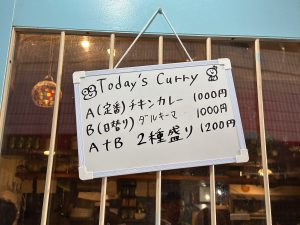 Today's Curry
A(定番)チキンカレー 1000円
B(日替り)ダルキーマ 1000円
A+B 2種盛り 1200円